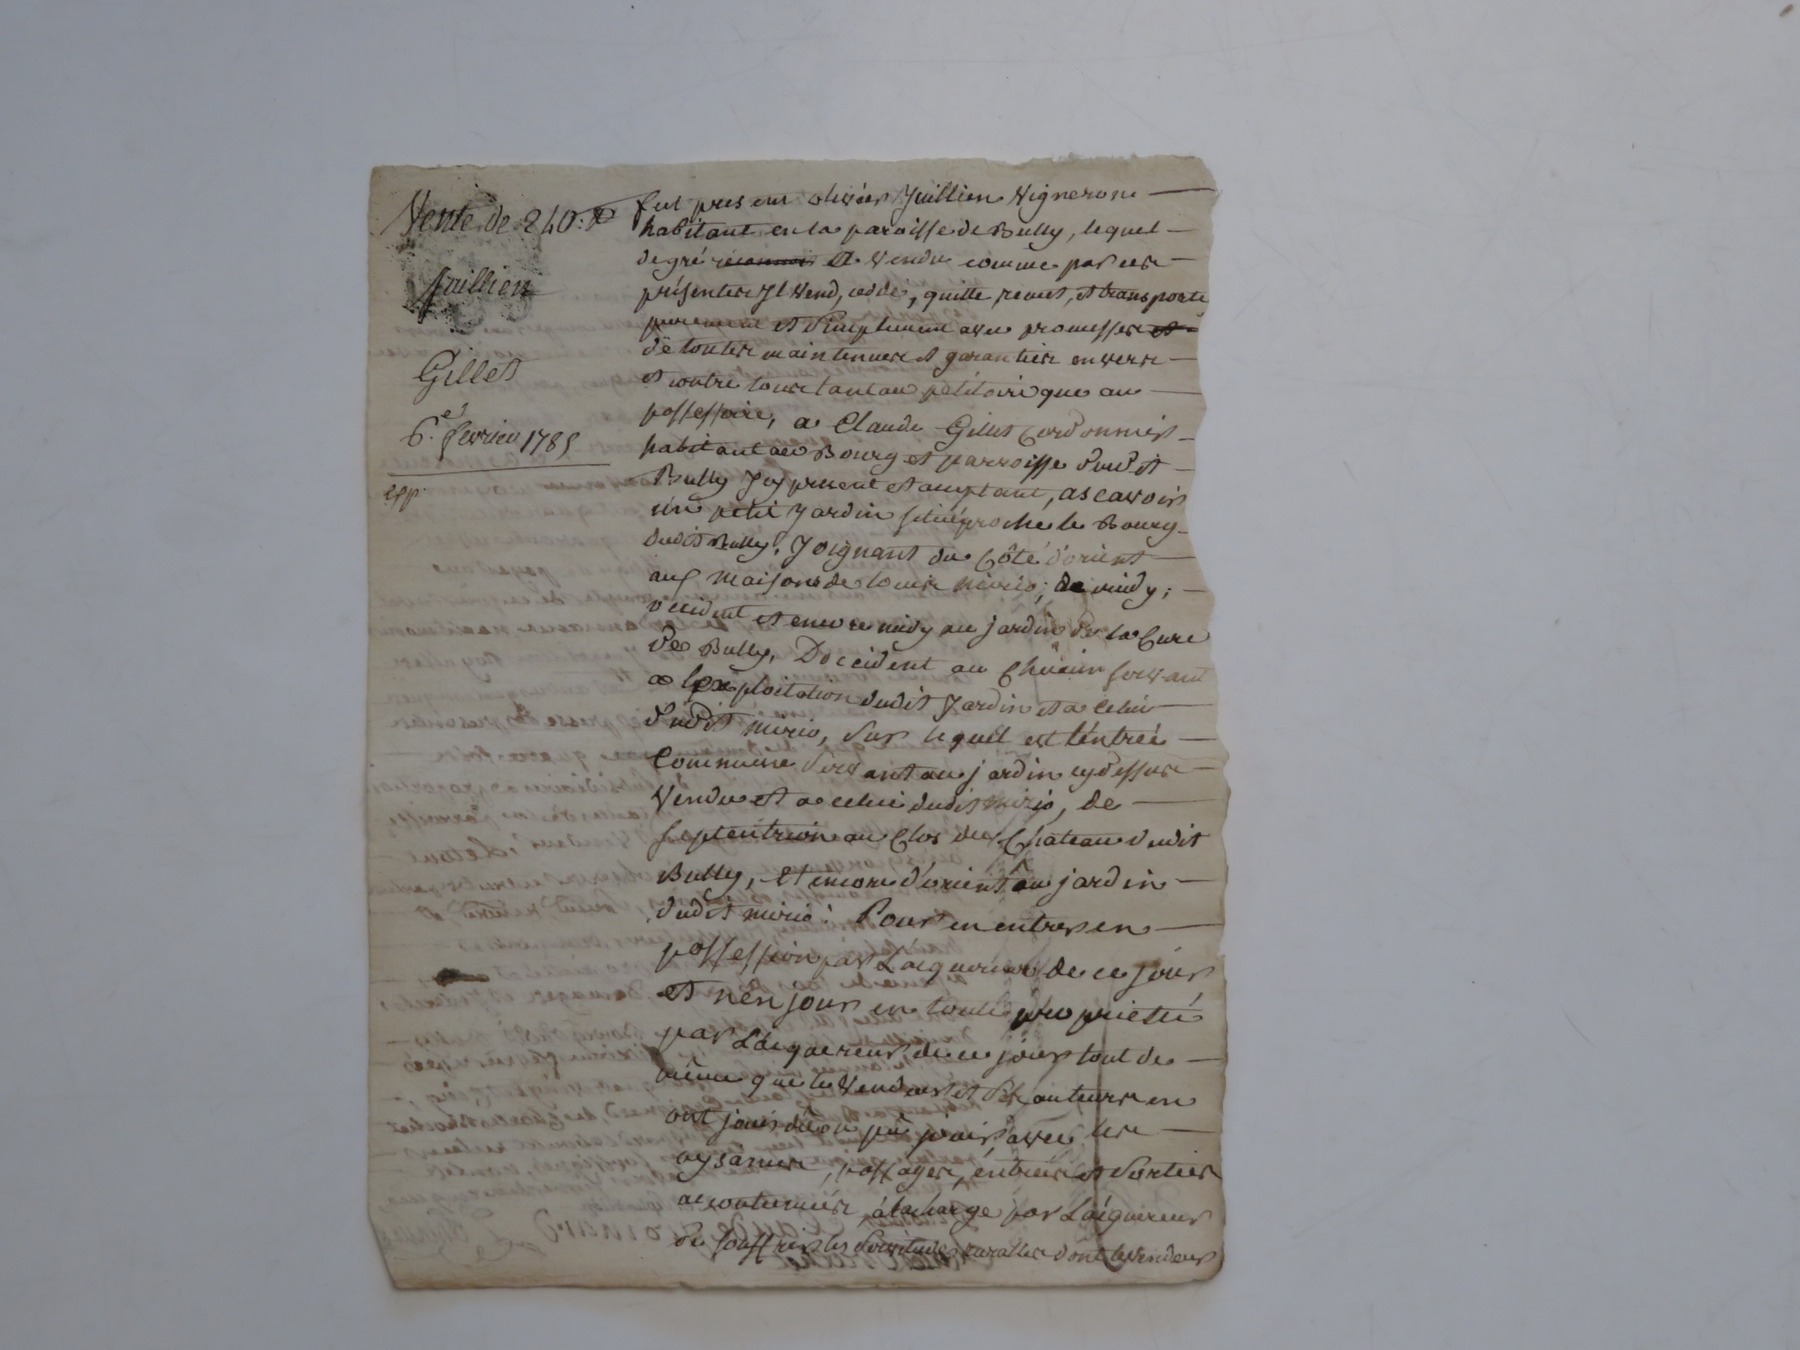 Vente de 240.#
Juillien
Gillet
6.e fevrier 1785
exp.
fut present olivier Juillien Vigneron
habitant en la paroisse de Bully, lequel
de gré reconnoit A Vendu comme par ces
présentes Il Vend, cedde, quitte, remet, et transporte
purement et Simplement avec promesses et
de toutes maintenues et garanties envers
et contre tous tant au pétitoire que au
possessoire, a Claude Gillet Cordonnier
habitant au Bourg et parroisse dudit
Bully Icy present et acceptant, ascavoir
un petit Jardin situé proche le Bourg
dudit Bully, Joignant du Côté d'orient
aux Maisons de Louis ; de midy;
occident et encore midy au jardin de la Cure
de Bully, Doccident au Chemin servant
a lexploitation dudit Jardin et a celui
dudit, Sur lequel est l'entrée
Commune Servant au jardin cydessus
Vendu et a celui dudit, de
Septentrion au Clos du Chateau dudit
Bully, et encore d'orient au jardin
dudit : Pour en entrer en
possession par Lacquereur de ce jour
et n'en jouir en toute proprieté
par Lacquereur de ce jour tout de
même que le Vendeur et Ses auteurs en
ont joui dû ou pû jouir avec les
aysances, passages, éntrées et Sorties
accoutumées, à la charge par Lacquereur
de souffrir les Servitudes ruralles dont le Vendeur